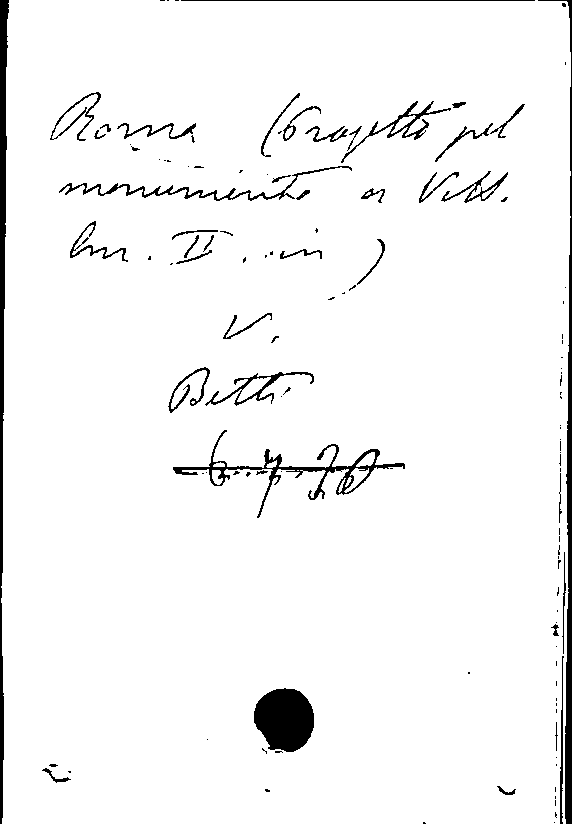 Roma (Progetto pel
monumento a Vitt.
Em. II. in)
V.
Betti
6.7.20